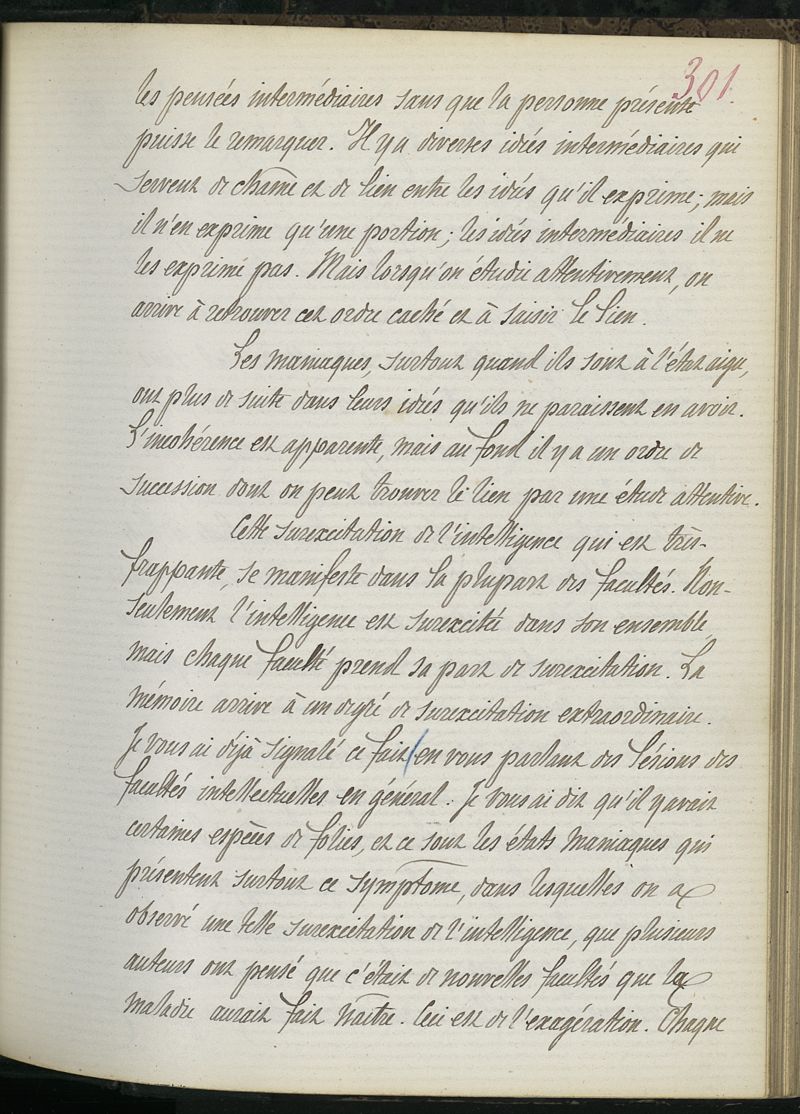 301
les pensées intermédiaires sans que la personne présente
puisse le remarquer. Il y a diverses idées intermédiaires qui
servent de chaîne et de lien entre les idées qu'il exprime; mais
il n'en exprime qu'une portion; les idées intermédiaires il ne
les exprime pas. Mais lorsqu'on étudie attentivement, on
arrive à retrouver cet ordre caché et à saisir le lien.
Les maniaques, surtout quand ils sont à l'état aigu,
ont plus de suite dans leurs idées qu'ils ne paraissent en avoir.
L'incohérence est apparente, mais au fond il y a un ordre de
succession dont on peut trouver le lien par une étude attentive.
Cette surexcitation de l'intelligence qui est très-
frappante, se manifeste dans la plupart des facultés. Non-
seulement l'intelligence est surexcitée dans son ensemble,
mais chaque faculté prend sa part de surexcitation. La
mémoire arrive à un degré de surexcitation extraordinaire.
Je vous ai déjà signalé ce fait en vous parlant des lésions des
facultés intellectuelles en général. Je vous ai dit qu'il y avait
certaines espèces de folies, et ce sont les états maniaques qui
présentent surtout ce symptome, dans lesquelles on a
observé une telle surexcitation de l'intelligence, que plusieurs
auteurs ont pensé que c'était de nouvelles facultés que la
maladie aurait fait naître. Ceci est de l'exagération. Chaque